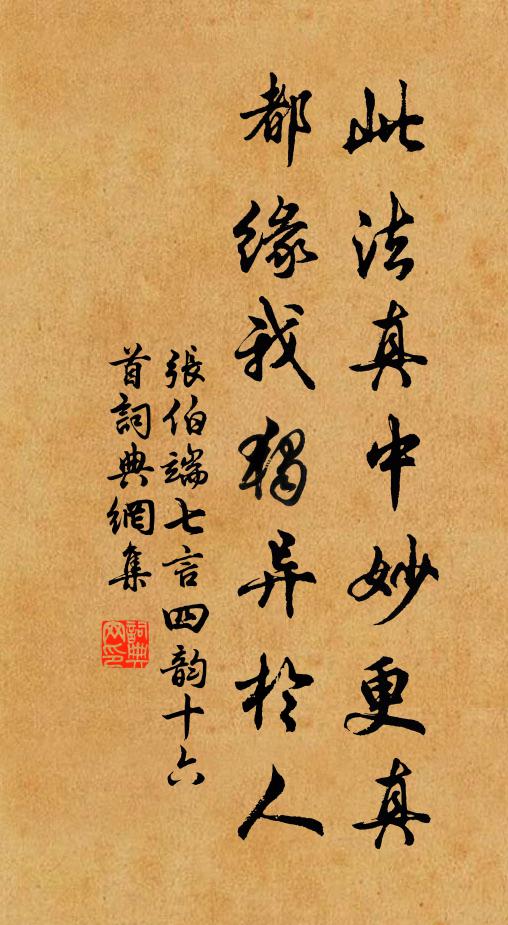 此法真中妙更真
都緣我獨异於人
張伯端七言四韵十六
首詞典網集
詞典
网印